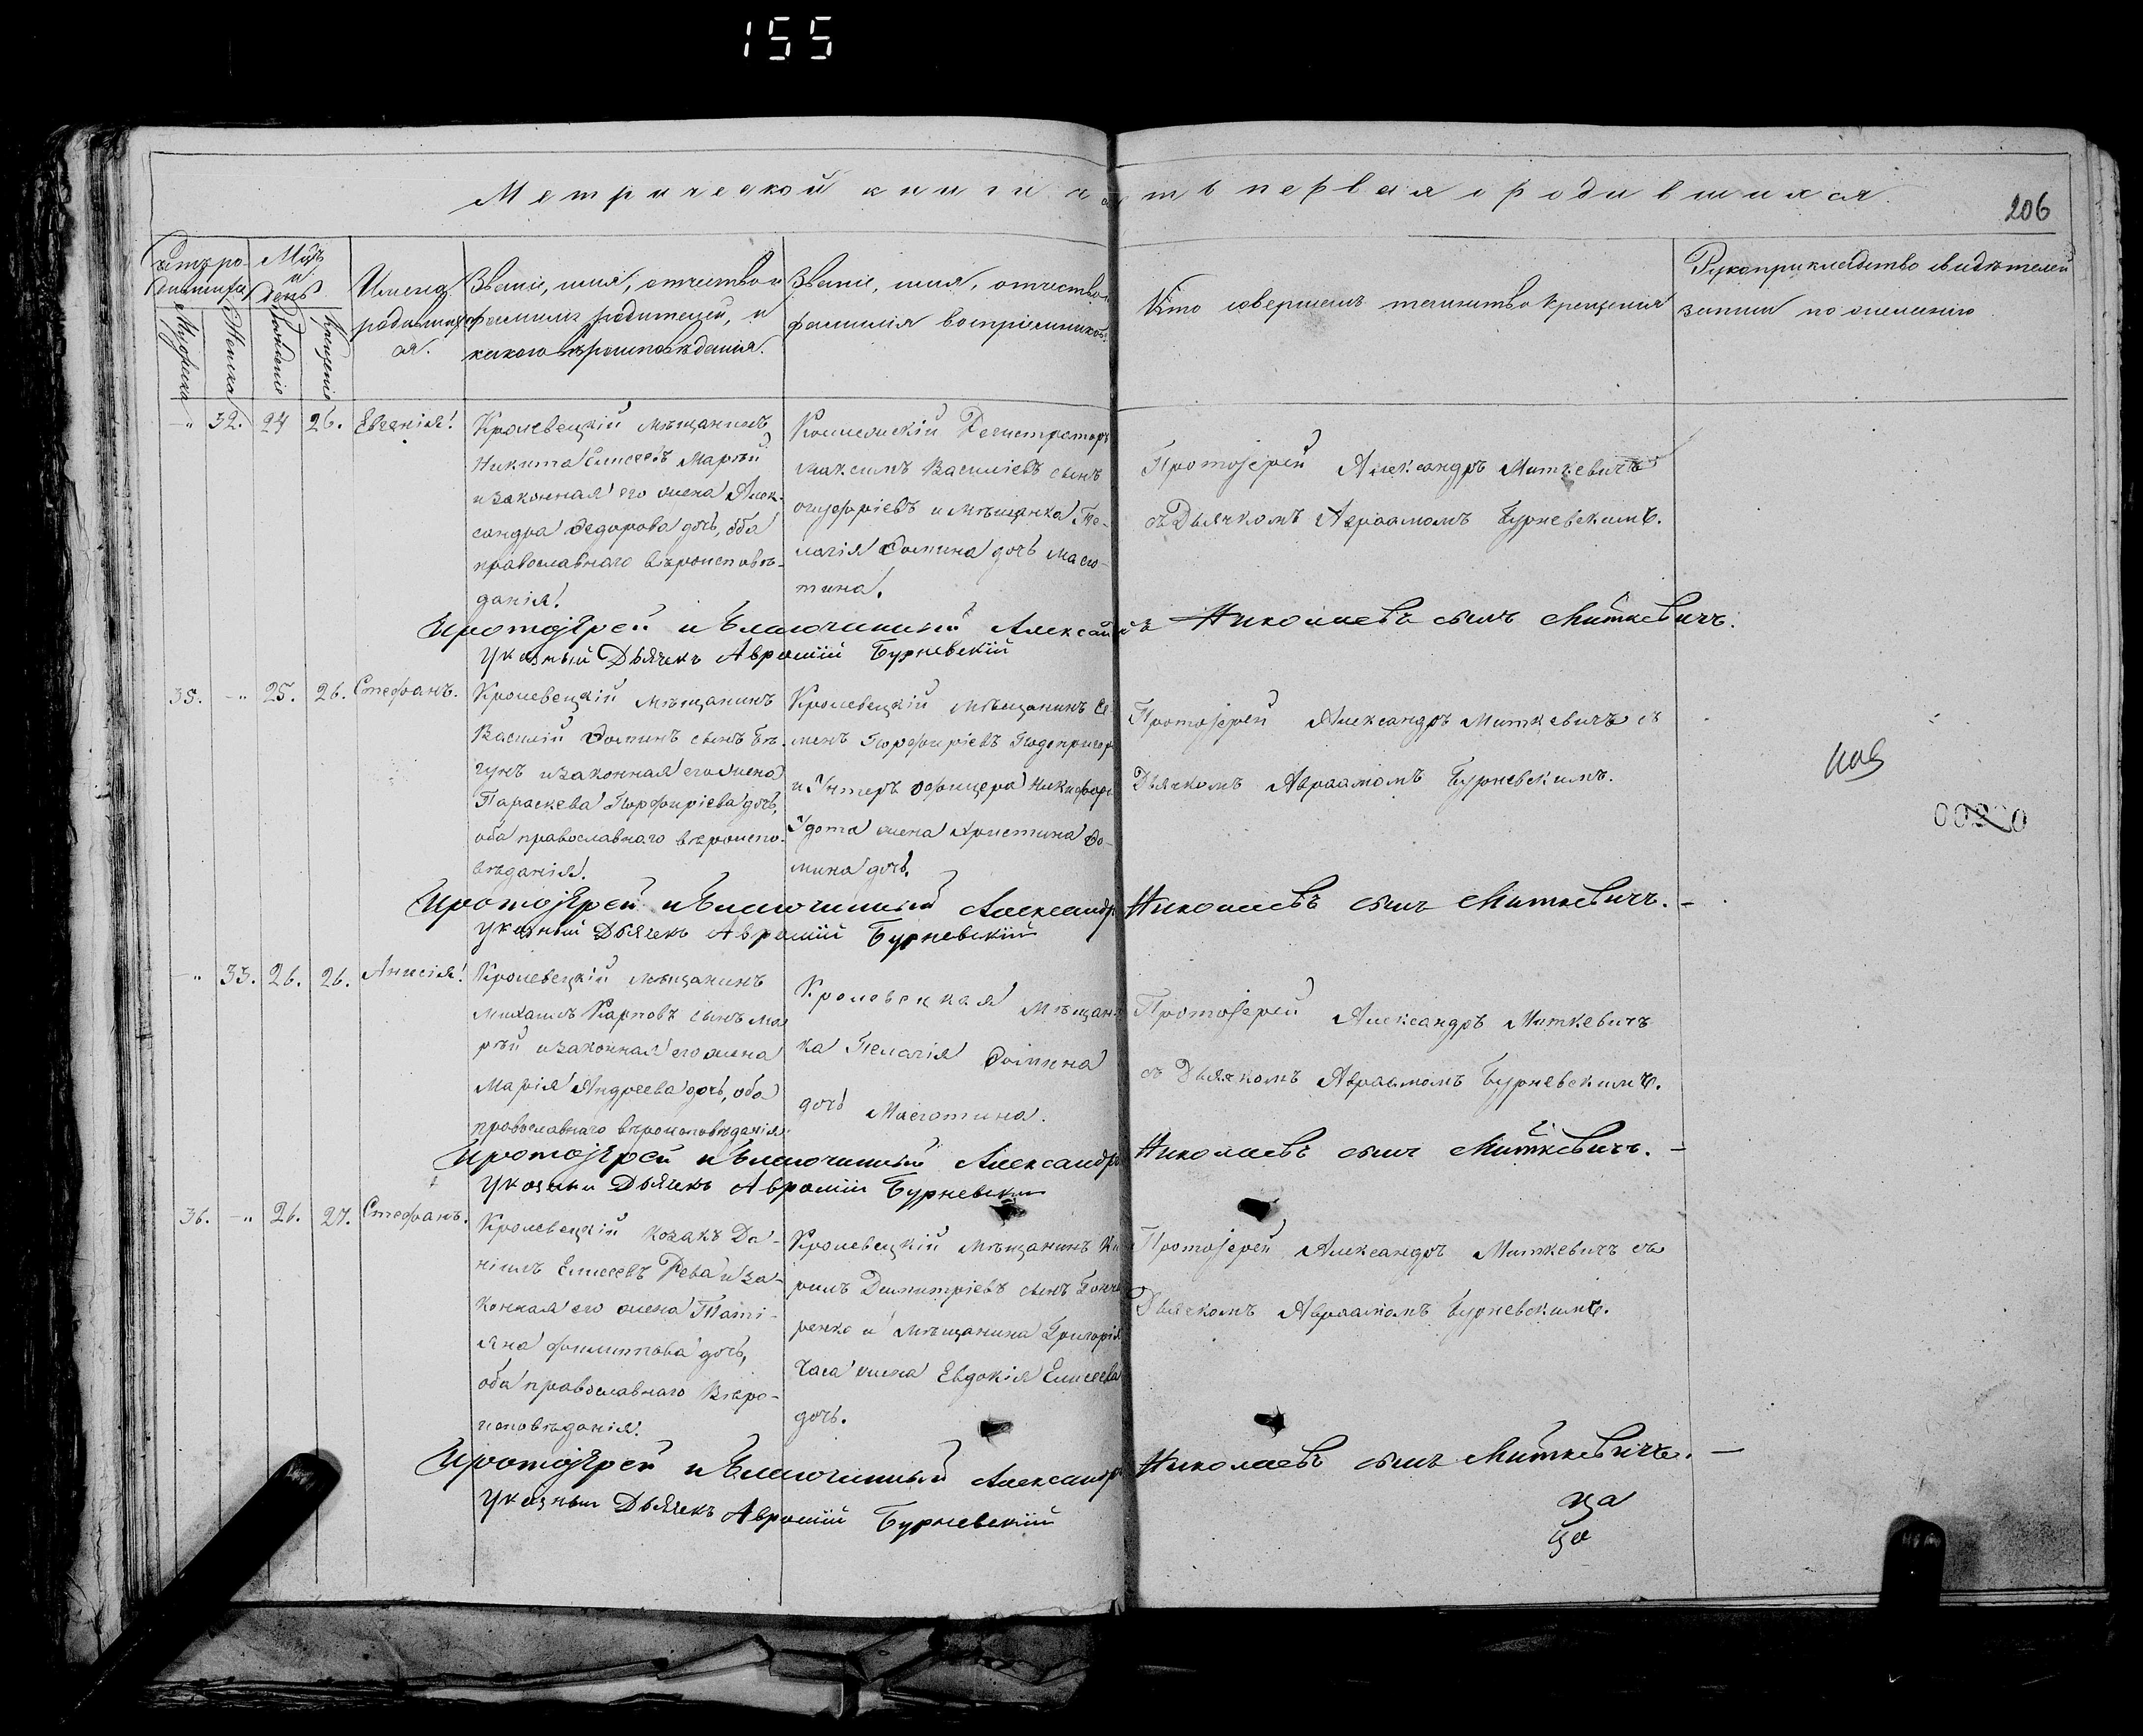 155
Метрической книги часть первая о родившихся.
206
Счетъ ро-
дившихся
Мѣсяцъ
и
день
Мужеска
Женска
Рожденіе
Крещеніе
Имена
родивших
ся.
Званіе, имя, отчество и
фамилія родителей, и
какого вѣроисповѣданія.
Званіе, имя, отчество и
фамилія воспріемниковъ.
Кто совершалъ таинство крещенія
Рукоприкладство свидѣтелей
записи по желанію
-" 32. 24 26. Евгенія.
Кролевецкій мѣщанинъ
Никита Елисеевъ
и законная его жена Алек-
сандра Федорова дочь, оба
православнаго вѣроисповѣ-
данія.
Коллежскій Регистраторъ
Максимъ Василіевъ сынъ
и мѣщанка Пе-
лагія Фомина дочь
Протоіерей Александръ Миткевичъ
съ Дьячкомъ Авраамомъ Бурневскимъ.
Протоіерей и Благочинный Александръ Николаевъ сынъ Миткевичъ.
Указный Дьячекъ Аврамій Бурневскій
35. -" 25. 26. Стефанъ.
Кролевецкій мѣщанинъ
Василій Фоминъ сынъ Бѣ-
гунъ и законная его жена
Параскева Порфиріева дочь,
оба православнаго вѣроиспо-
вѣданія.
Кролевецкій мѣщанинъ Се-
менъ Порфиріевъ Подопригор
и Унтеръ Офицера Никифора
Удота жена Христина Фо-
мина дочь.
Протоіерей Александръ Миткевичъ съ
Дьячкомъ Авраамомъ Бурневскимъ.
Протоіерей и Благочинный Александръ Николаевъ сынъ Миткевичъ. -
Указный Дьячекъ Аврамій Бурневскій
-" 33. 26. 26. Анисія.
Кролевецкій мѣщанинъ
Михаилъ Карповъ сынъ
и законная его жена
Марія Андреева дочь, оба
православнаго вѣроисповѣданія.
Кролевецкая мѣщан-
ка Пелагія Фомина
дочь
Протоіерей Александръ Миткевичъ
съ Дьячкомъ Авраамомъ Бурневскимъ.
Протоіерей и Благочинный Александръ Николаевъ сынъ Миткевичъ. -
Указный Дьячекъ Аврамій Бурневскій
36. -" 26. 27. Стефанъ.
Кролевецкій козакъ Да-
ніилъ Елисеевъ Рева и за-
конная его жена Таті-
яна Филиппова дочь,
оба православнаго вѣро-
исповѣданія.
Кролевецкій мѣщанинъ Ки
рилъ Димитріевъ сынъ Гонча
ренко и мѣщанина Григорія
Часа жена Евдокія Елисеева
дочь.
Протоіерей Александръ Миткевичъ съ
Дьячкомъ Авраамомъ Бурневскимъ.
Протоіерей и Благочинный Александръ Николаевъ сынъ Миткевичъ. -
Указный Дьячекъ Аврамій Бурневскій